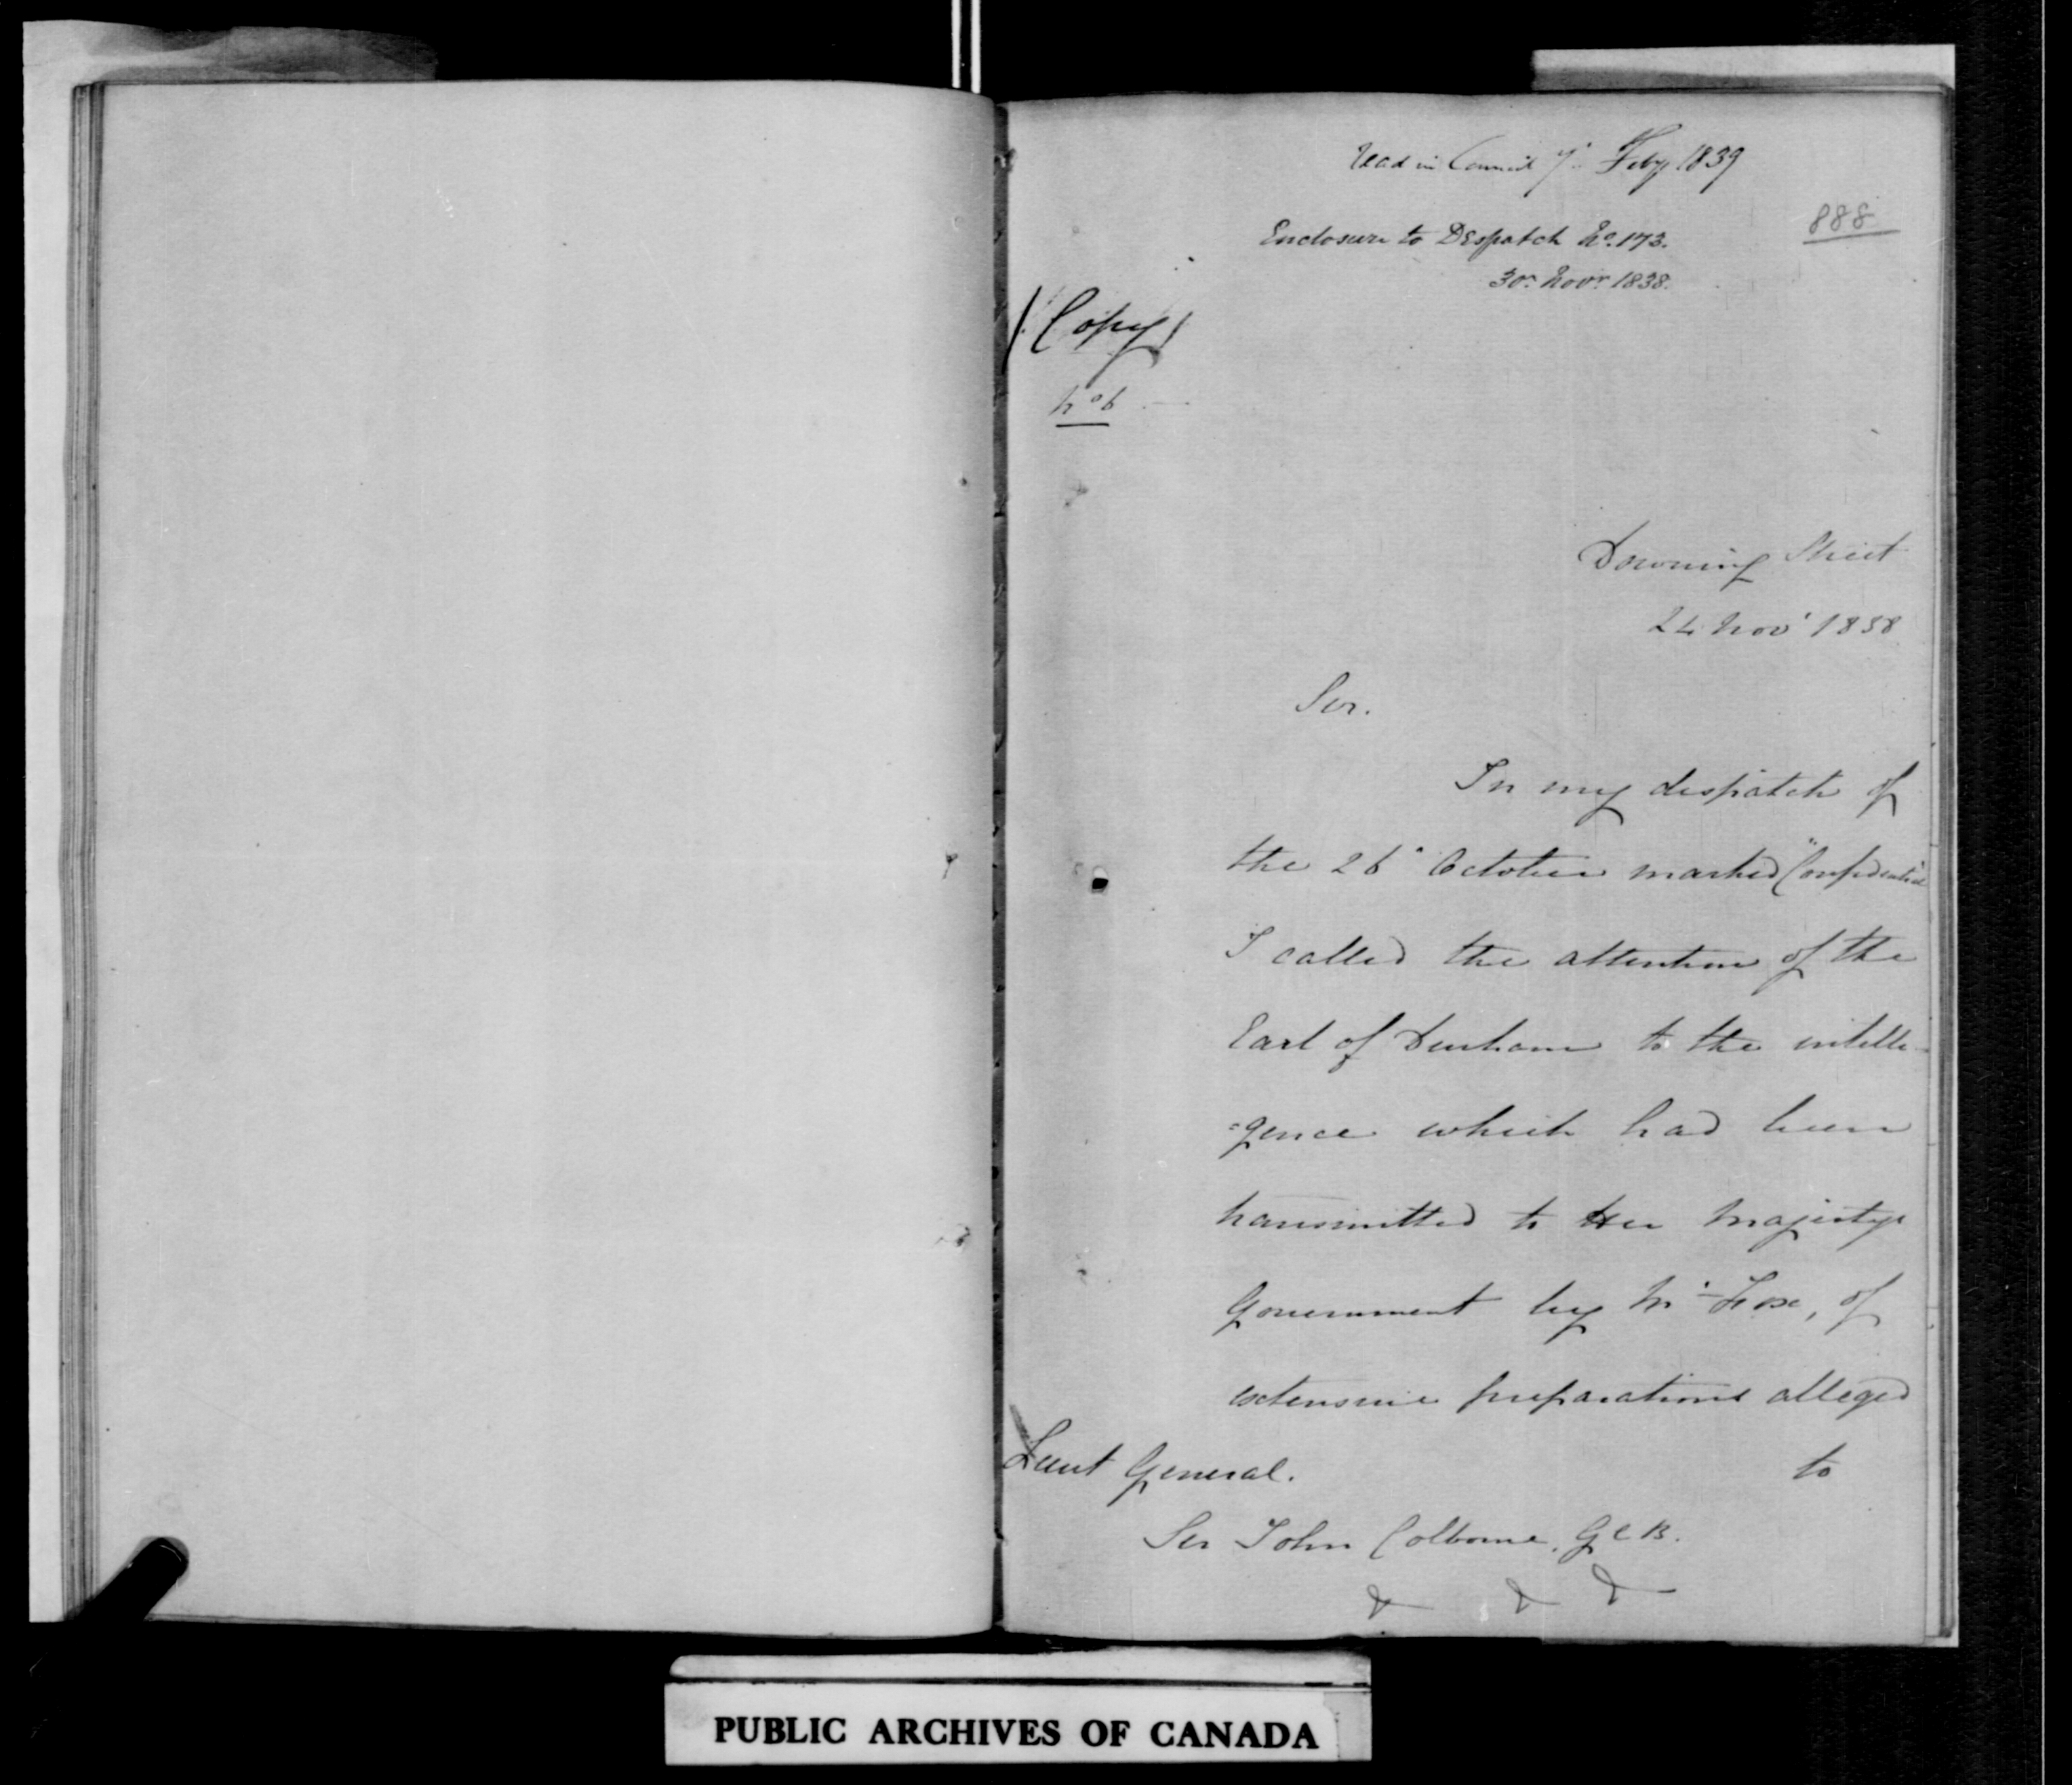 Read in Council 7th Feby 1839
888
Enclosure to Despatch No. 173.
30th Novr 1838.
(Copy)
No 6
Downing Street
24 Novr 1838
Sir.
In my despatch of
the 26th October marked "Confidential
I called the attention of the
Earl of Durham to the intelli-
-gence which had been
transmitted to Her Majestys
Government by Mr Fox, of
extensive preparations alleged
to
Lieut General.
Sir John Colborne, GCB.
& & &
PUBLIC ARCHIVES OF CANADA